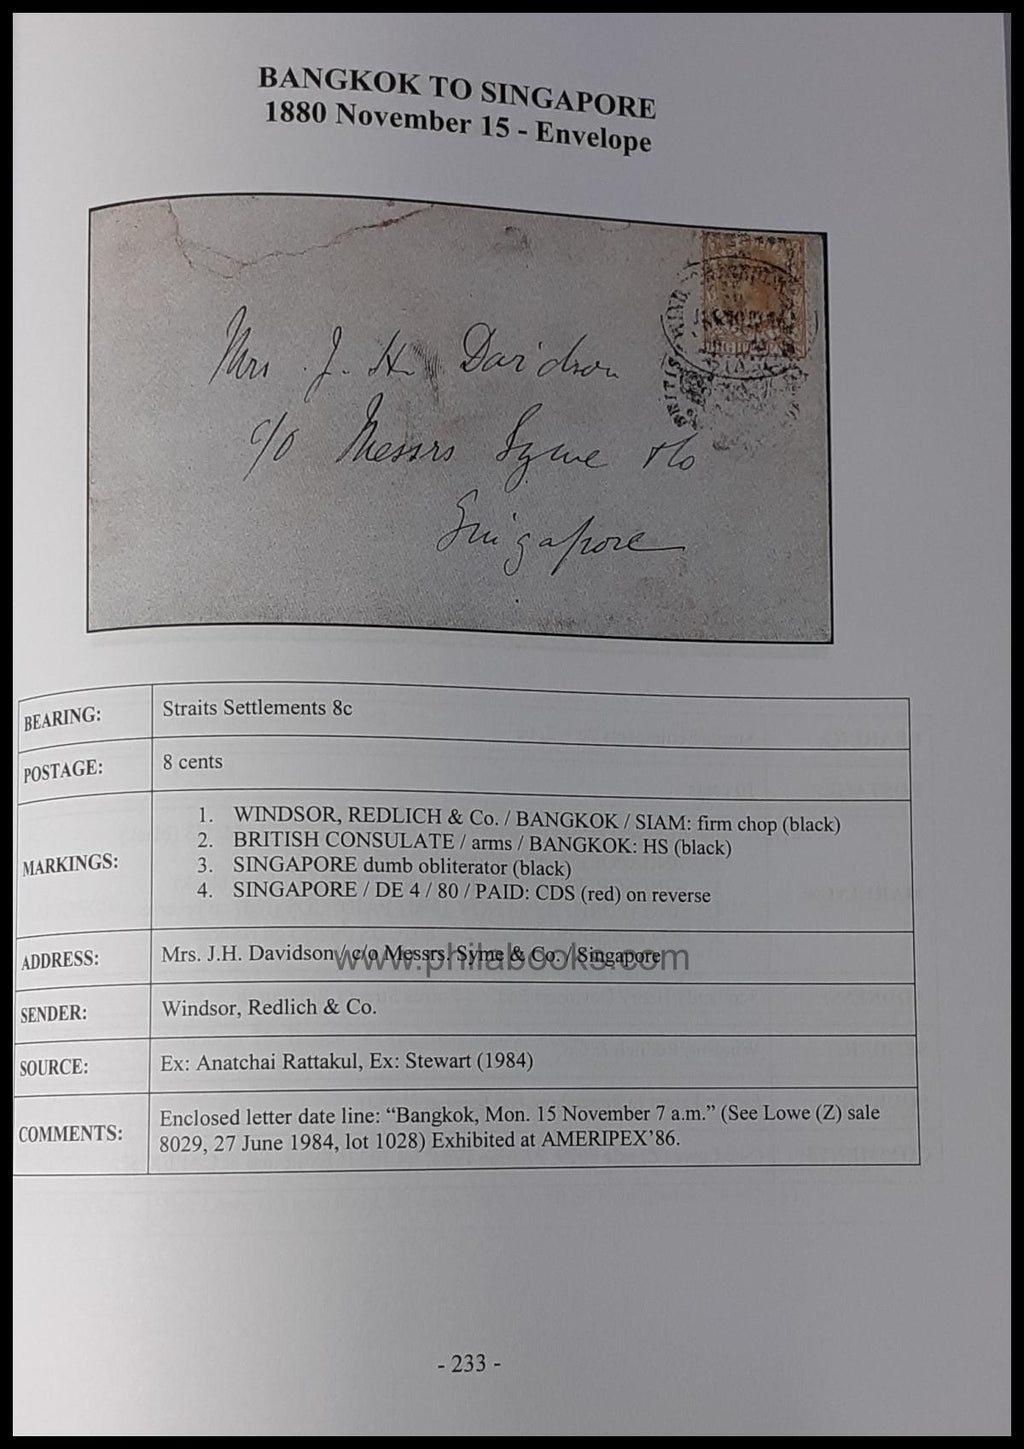 BANGKOK TO SINGAPORE
1880 November 15 - Envelope
Mrs J. H. Davidson
c/o Messrs Syme & Co
Singapore
BEARING: Straits Settlements 8c
POSTAGE: 8 cents
MARKINGS:
1. WINDSOR, REDLICH & Co. / BANGKOK / SIAM: firm chop (black)
2. BRITISH CONSULATE / arms / BANGKOK: HS (black)
3. SINGAPORE dumb obliterator (black)
4. SINGAPORE / DE 4 / 80 / PAID: CDS (red) on reverse
ADDRESS: Mrs. J.H. Davidson / c/o Messrs. Syme & Co. / Singapore
www.philabooks.com
SENDER: Windsor, Redlich & Co.
SOURCE: Ex: Anatchai Rattakul, Ex: Stewart (1984)
COMMENTS: Enclosed letter date line: “Bangkok, Mon. 15 November 7 a.m.” (See Lowe (Z) sale
8029, 27 June 1984, lot 1028) Exhibited at AMERIPEX’86.
- 233 -